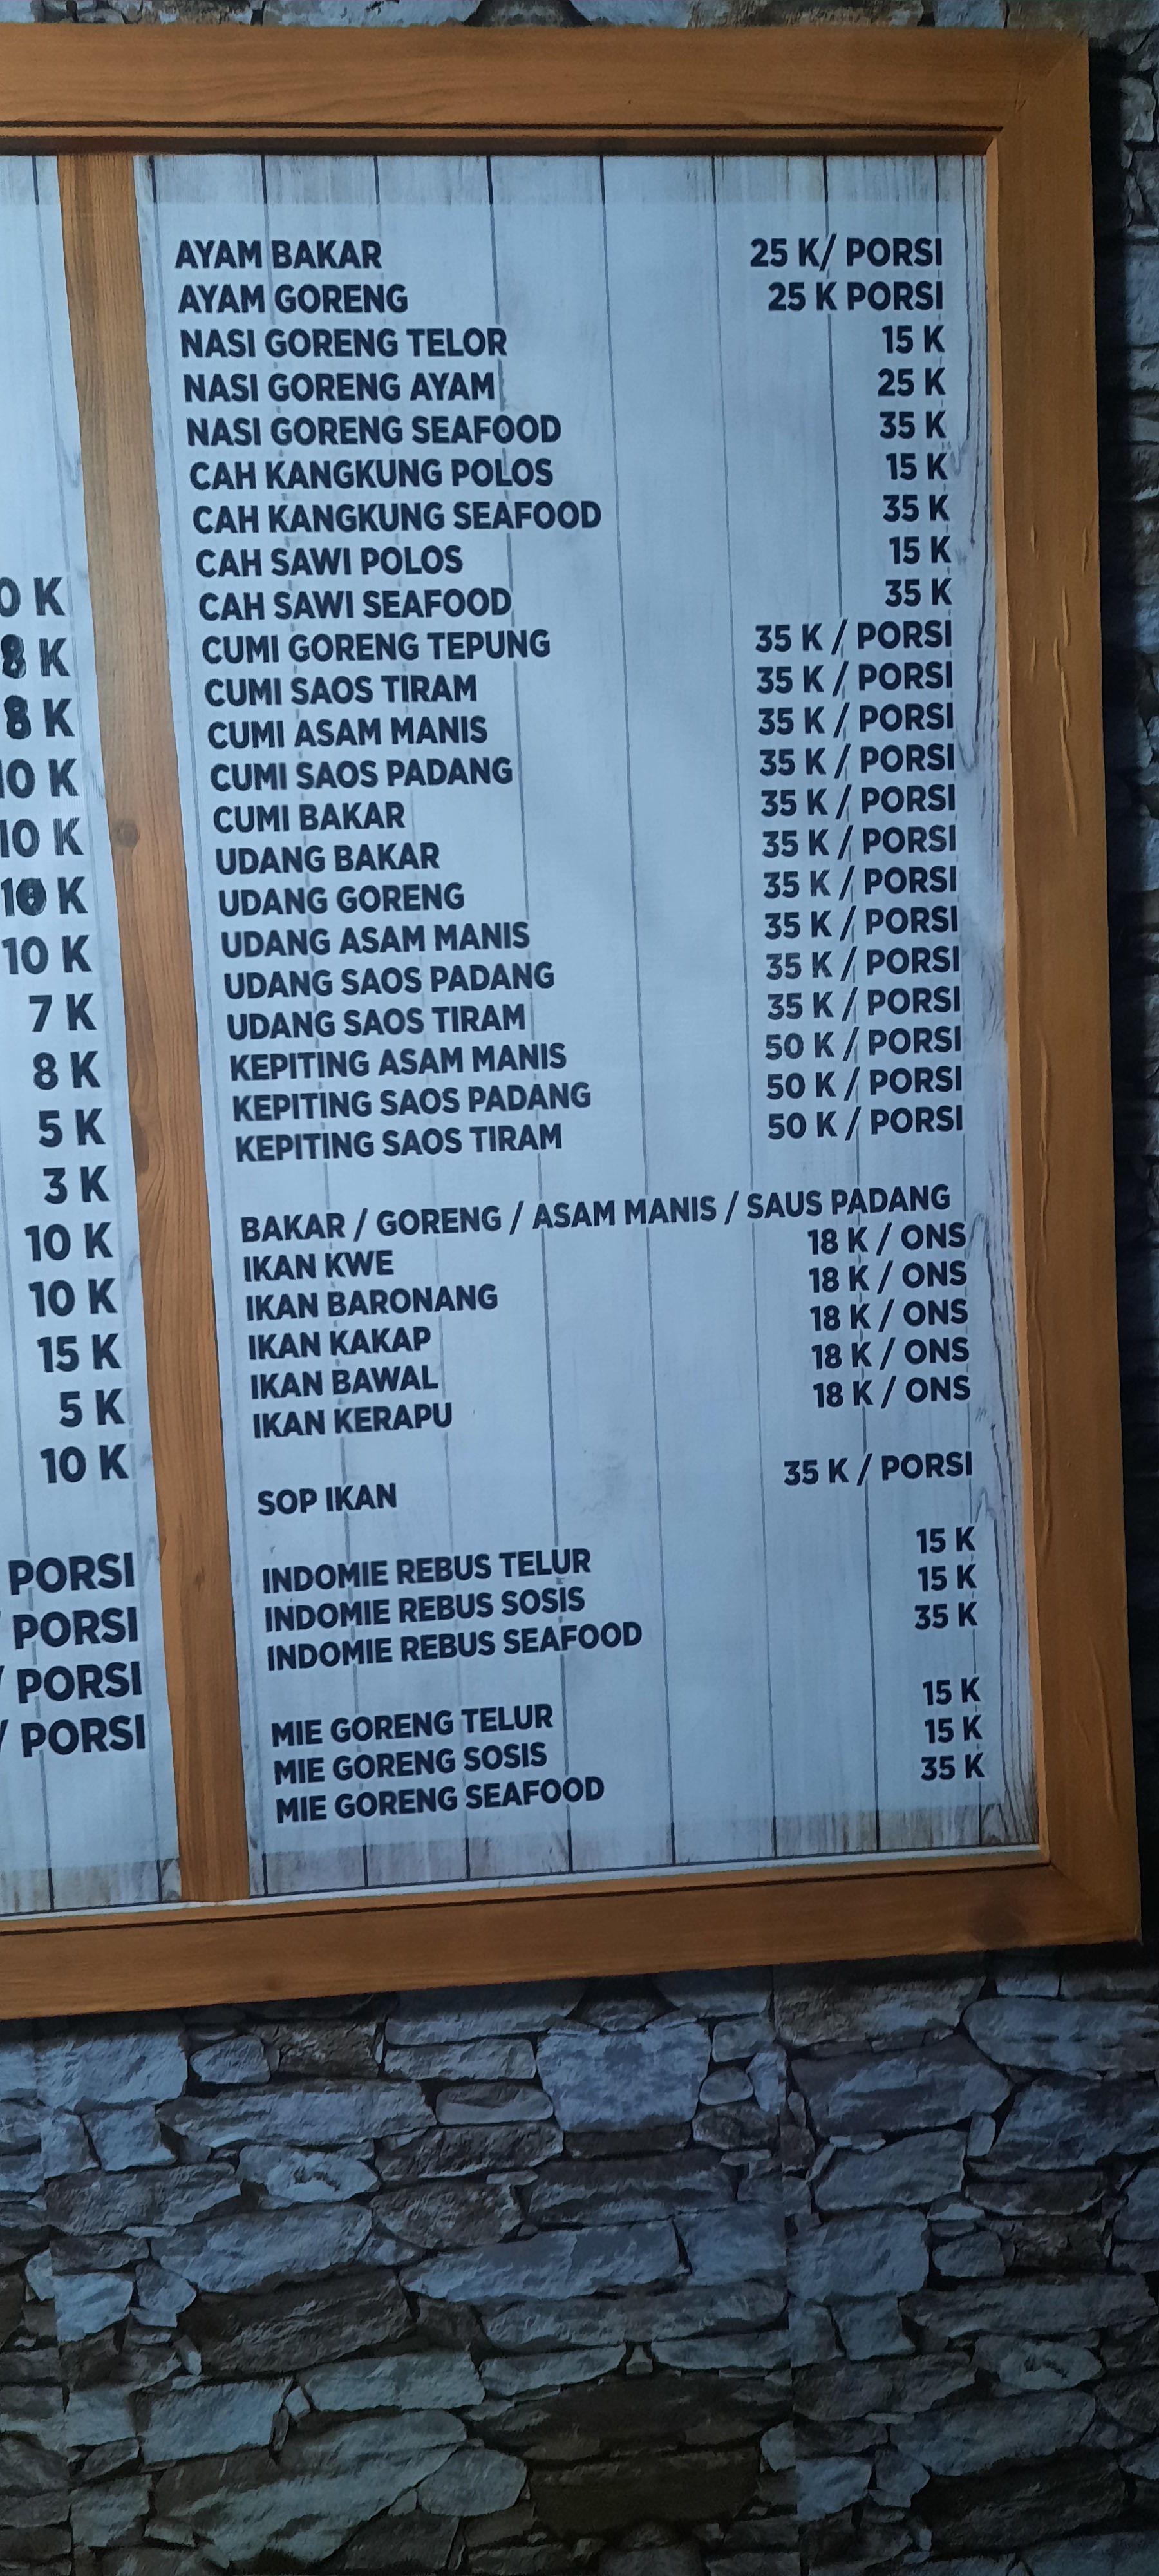 0 K
8 K
8 K
10 K
10 K
10 K
10 K
7 K
8 K
5 K
3 K
10 K
10 K
15 K
5 K
10 K
PORSI
/ PORSI
/ PORSI
/ PORSI
AYAM BAKAR 25 K/ PORSI
AYAM GORENG 25 K PORSI
NASI GORENG TELOR 15 K
NASI GORENG AYAM 25 K
NASI GORENG SEAFOOD 35 K
CAH KANGKUNG POLOS 15 K
CAH KANGKUNG SEAFOOD 35 K
CAH SAWI POLOS 15 K
CAH SAWI SEAFOOD 35 K
CUMI GORENG TEPUNG 35 K / PORSI
CUMI SAOS TIRAM 35 K / PORSI
CUMI ASAM MANIS 35 K / PORSI
CUMI SAOS PADANG 35 K / PORSI
CUMI BAKAR 35 K / PORSI
UDANG BAKAR 35 K / PORSI
UDANG GORENG 35 K / PORSI
UDANG ASAM MANIS 35 K / PORSI
UDANG SAOS PADANG 35 K / PORSI
UDANG SAOS TIRAM 35 K / PORSI
KEPITING ASAM MANIS 50 K / PORSI
KEPITING SAOS PADANG 50 K / PORSI
KEPITING SAOS TIRAM 50 K / PORSI
BAKAR / GORENG / ASAM MANIS / SAUS PADANG
IKAN KWE 18 K / ONS
IKAN BARONANG 18 K / ONS
IKAN KAKAP 18 K / ONS
IKAN BAWAL 18 K / ONS
IKAN KERAPU 18 K / ONS
SOP IKAN 35 K / PORSI
INDOMIE REBUS TELUR 15 K
INDOMIE REBUS SOSIS 15 K
INDOMIE REBUS SEAFOOD 35 K
MIE GORENG TELUR 15 K
MIE GORENG SOSIS 15 K
MIE GORENG SEAFOOD 35 K